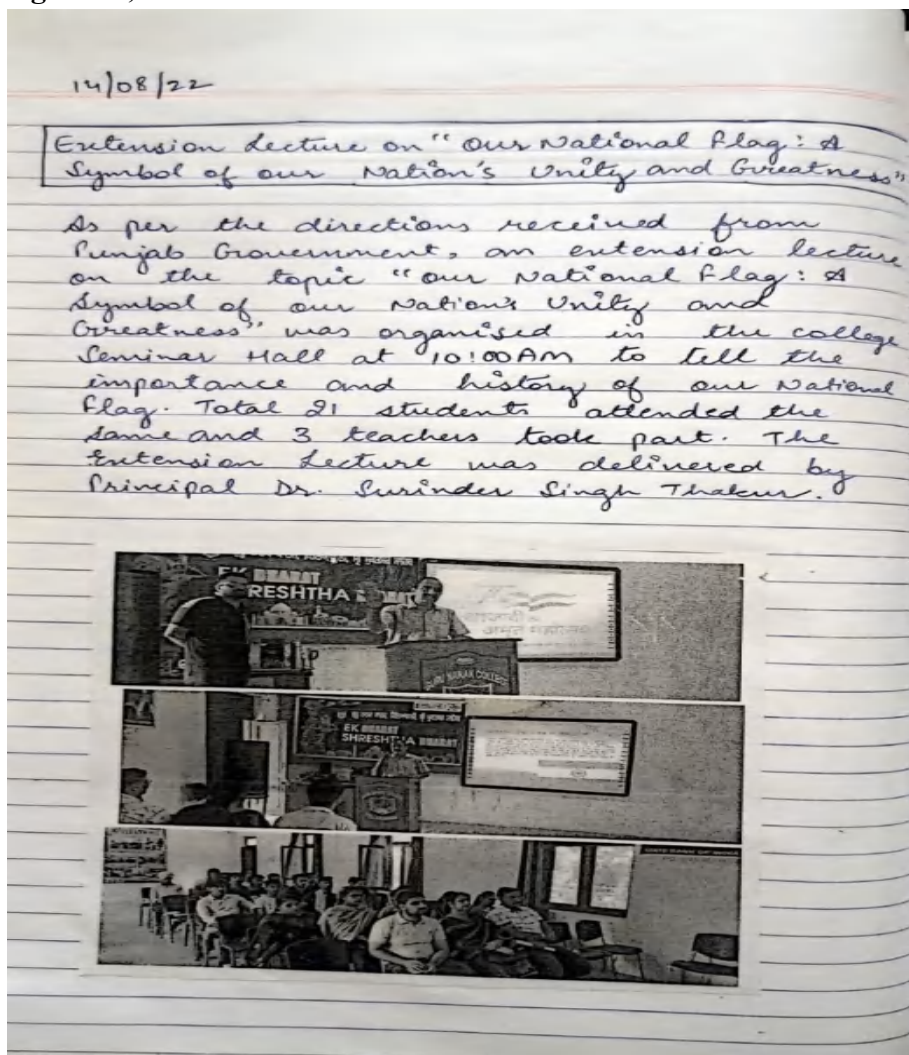 14/08/22
Extension Lecture on "Our National Flag: A
Symbol of our Nation's Unity and Greatness"
As per the directions received from
Punjab Government, an extension lecture
on the topic "Our National Flag: A
Symbol of our Nation's Unity and
Greatness" was organised in the college
Seminar Hall at 10:00AM to tell the
importance and history of our National
Flag. Total 21 students attended the
same and 3 teachers took part. The
Extension Lecture was delivered by
Principal Dr. Surinder Singh Thakur.
EK BHARAT
SHRESHTHA BHARAT
अमृत महोत्सव
NANAK COLLEGE
EK BHARAT
SHRESHTHA BHARAT